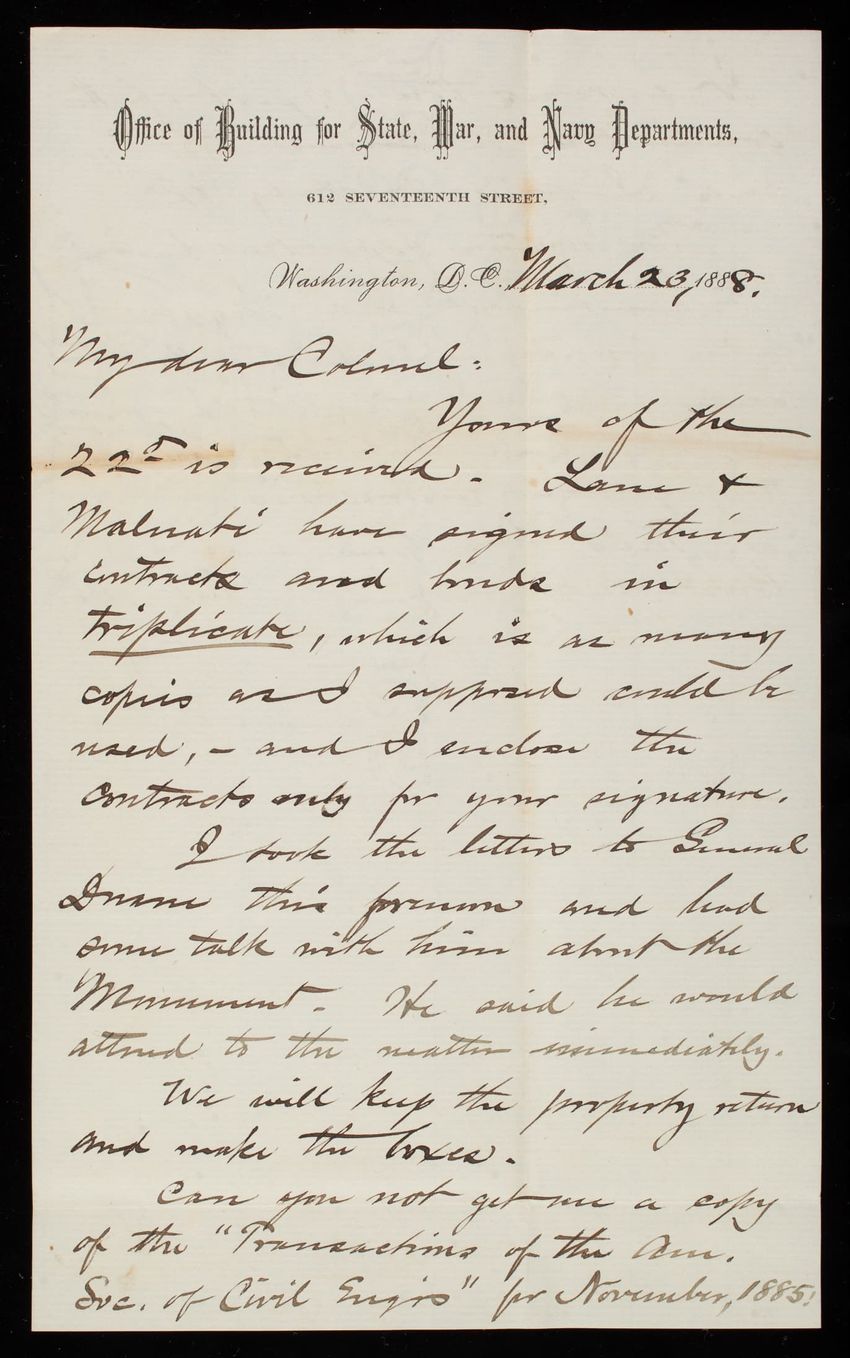 Office of Building for State, War, and Navy Departments,
612 SEVENTEENTH STREET,
Washington, D. C. March 23, 1888.
My dear Colonel:
Yours of the
22d is received. Lane &
Malnati have signed their
contracts and bonds in
triplicate, which is as many
copies as I supposed could be
used, - and I enclose the
contracts only for your signature.
I took the letters to General
Duane this forenoon and had
some talk with him about the
Monument. He said he would
attend to the matter immediately.
We will keep the property return
and make the boxes.
Can you not get me a copy
of the "Transactions of the Am.
Soc. of Civil Eng'rs" for November, 1885: